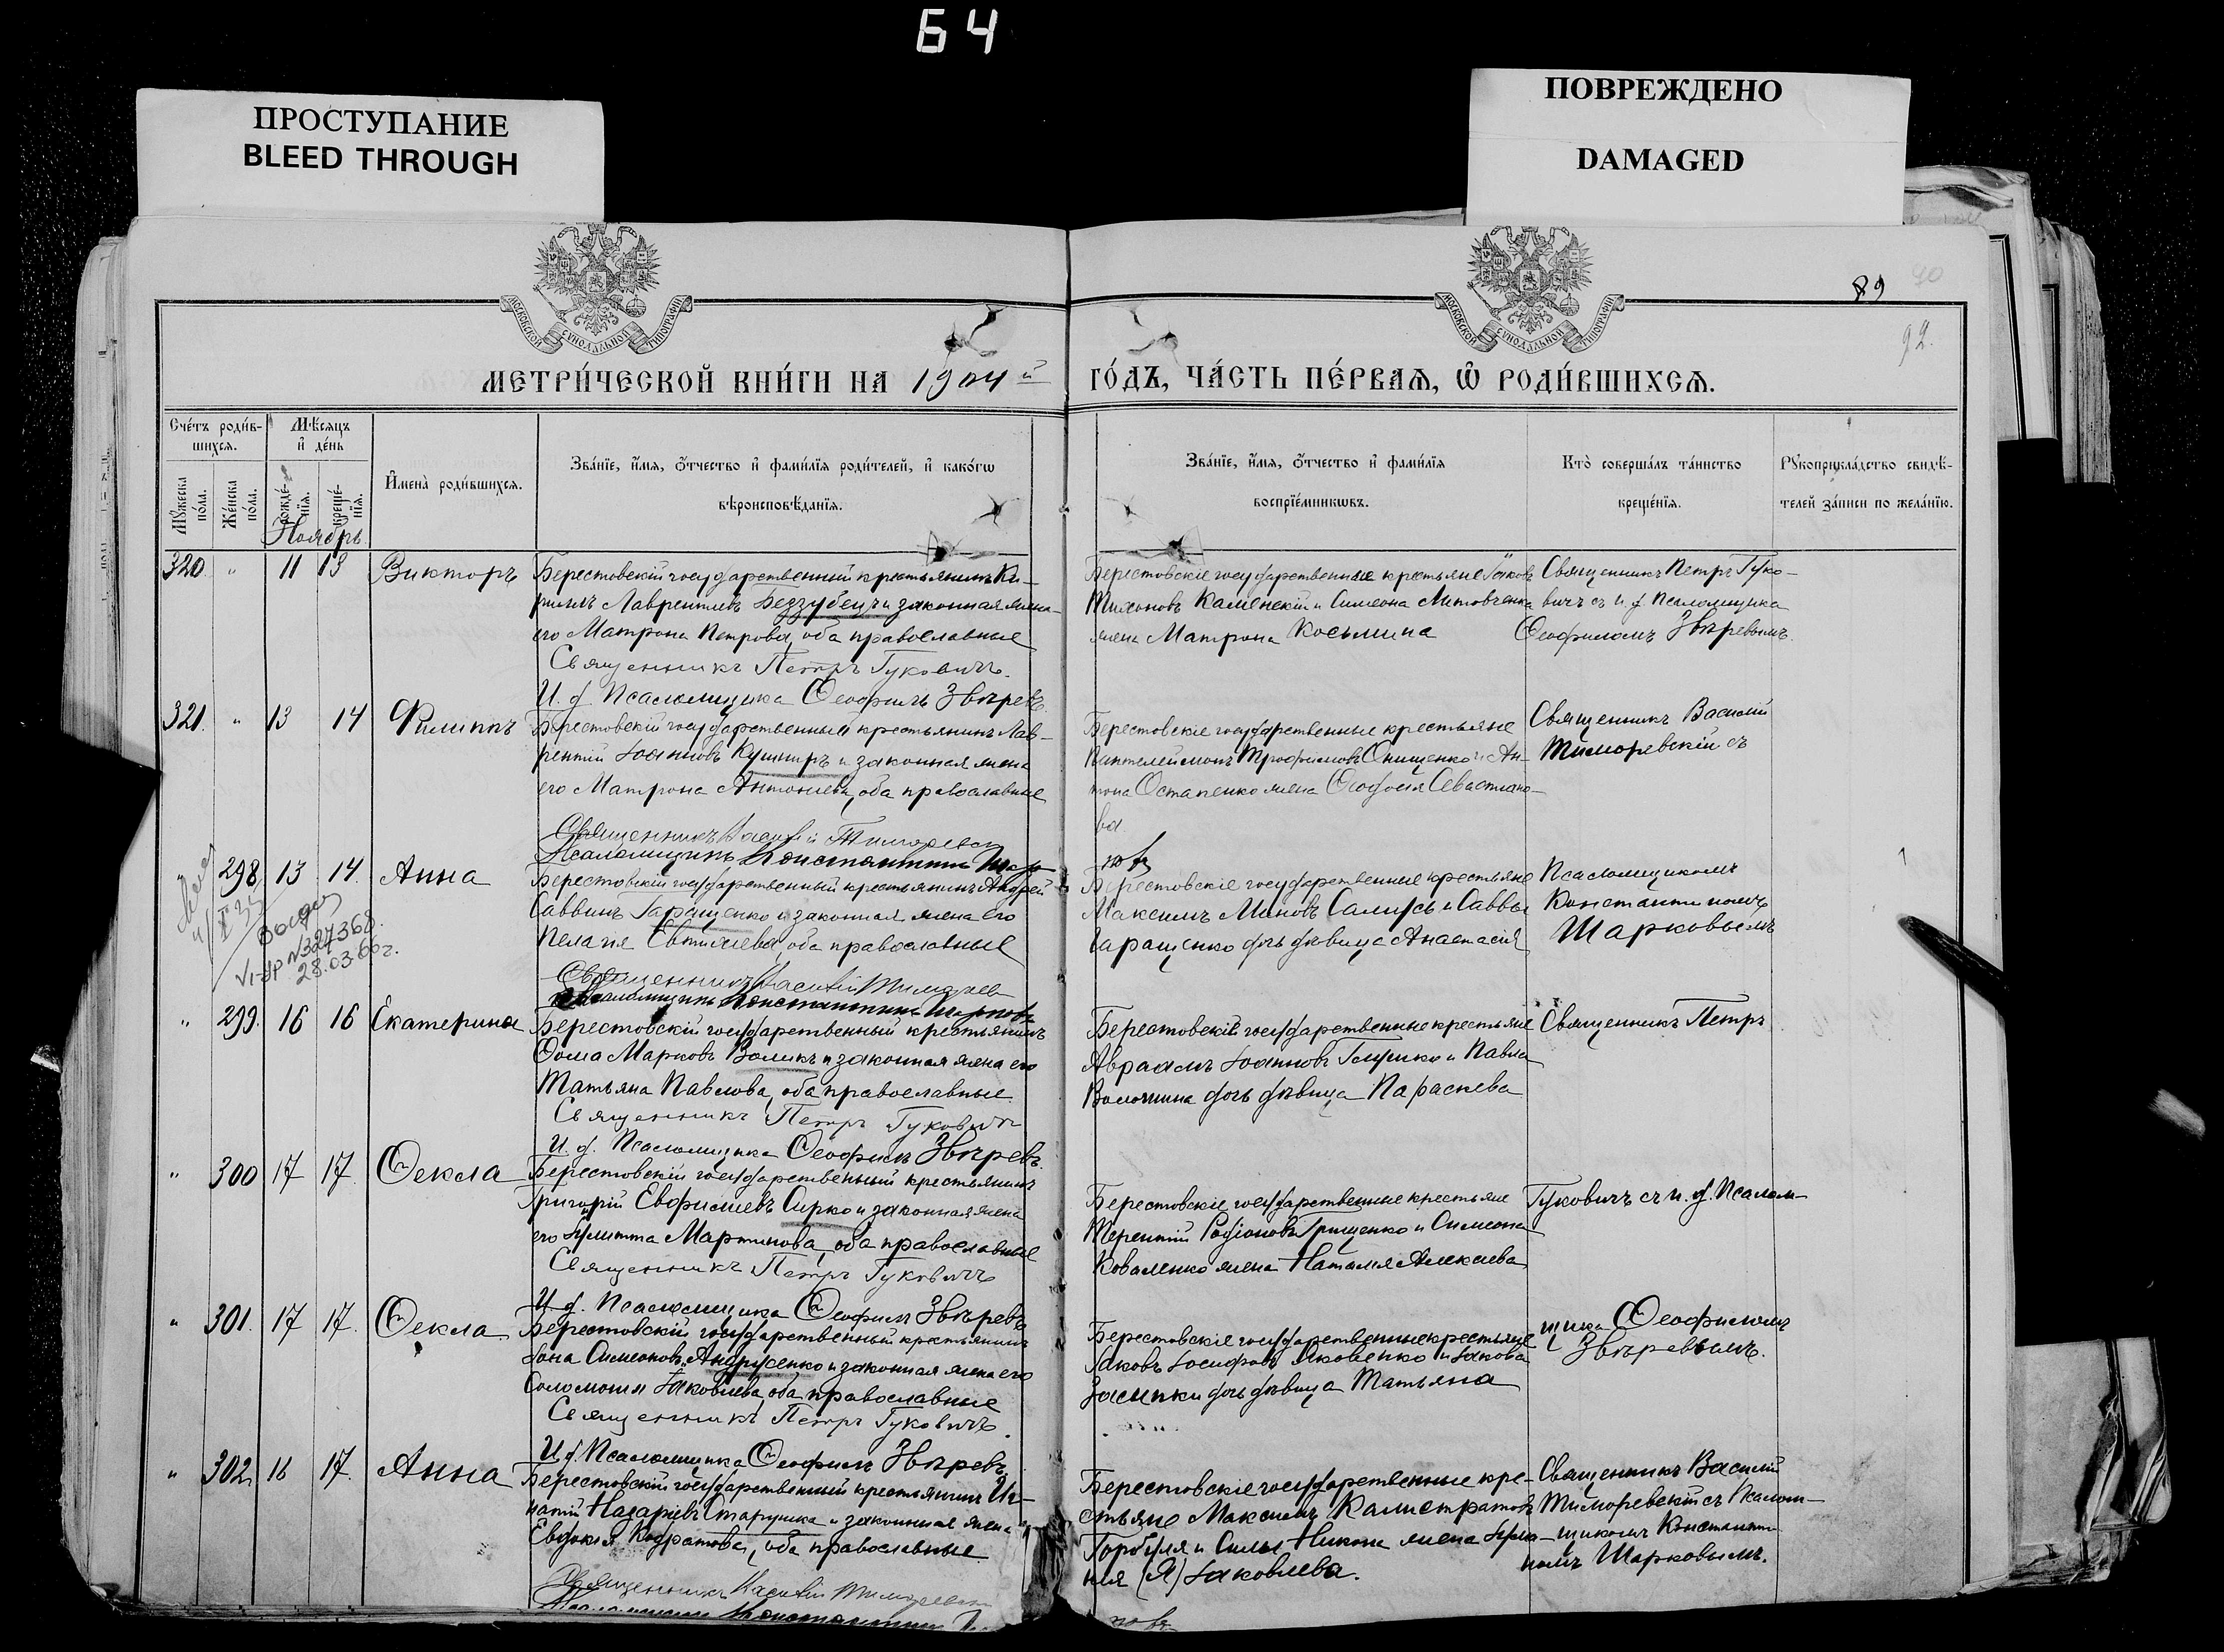 64
ПРОСТУПАНИЕ
BLEED THROUGH
ПОВРЕЖДЕНО
DAMAGED
МОСКОВСКОЙ СѴНОДАЛЬНОЙ ТИПОГРАФІИ
МОСКОВСКОЙ СѴНОДАЛЬНОЙ ТИПОГРАФІИ
89
90
92.
МЕТРИ́ЧЕСКОЙ КНИ́ГИ НА 1904й
ГО́ДЪ, ЧА́СТЬ ПЕ́РВАѦ, Ѡ РОДИ́ВШИХСѦ.
Сче́тъ роди́в-
шихсѧ.
Мꙋ́жеска по́ла.
Же́нска по́ла.
Мѣ́сѧцъ
и҆ де́нь
рожде́-
нїѧ.
креще́-
нїѧ.
Ноябрь
И҆мена̀ роди́вшихсѧ.
Зва́нїе, и҆́мѧ, ѻ҆́тчество и҆ фами́лїѧ роди́телей, и҆ како́гѡ
вѣроисповѣ́данїѧ.
Зва́нїе, и҆́мѧ, ѻ҆́тчество и҆ фами́лїѧ
воспрїе́мникѡвъ.
Кто̀ соверша́лъ та́инство
креще́нїѧ.
Рꙋкоприкла́дство свидѣ́-
телей за́писи по жела́нїю.
320 " 11 13 Викторъ
Берестовскій государственный крестьянинъ Ки-
риллъ Лаврентіевъ Беззубецъ и законная жена
его Матрона Петрова, оба православные
Священникъ Петръ Гуковичъ.
И. д. Псаломщика Ѳеофилъ Звѣревъ.
Берестовскіе государственные крестьяне Іаковъ
Тихоновъ Каменскій и Симеона Литовченка
жена Матрона Косьмина
Священникъ Петръ Гуко-
вичъ съ и. д. псаломщика
Ѳеофиломъ Звѣревымъ.
321. " 13 14 Филиппъ
Берестовскій государственный крестьянинъ Лав-
рентій Іоанновъ Кушниръ и законная жена
его Матрона Антоніева, оба православные
Священникъ Василій
Псаломщикъ Константинъ Шар-
ковъ
Берестовскіе государственные крестьяне
Пантелеймонъ Трофимовъ Онищенко и Ан-
тона Остапенко жена Ѳеодосія Севастіано-
ва
Священникъ Василій
Тиморевскій съ
298 13 14. Анна
выдан
VI-АР №327368.
28.03.60г.
Берестовскій государственный крестьянинъ Андрей
Саввинъ Гаращенко и законная жена его
Пелагія Евтихіева, оба православные
Священникъ Василій
Псаломщикъ Константинъ Шарковъ
Берестовскіе государственные крестьяне
Максимъ Миновъ Салусь и Саввы
Гаращенко дочь дѣвица Анастасія
Псаломщикомъ
Константиномъ
Шарковымъ
" 299. 16 16 Екатерина
Берестовскій государственный крестьянинъ
Ѳома Марковъ Воликъ и законная жена его
Татьяна Павлова, оба православные.
Священникъ Петръ Гуковичъ
И. д. Псаломщика Ѳеофилъ Звѣревъ.
Берестовскій государственные крестьяне
Авраамъ Іоанновъ и Павла
дочь дѣвица Параскева
Священникъ Петръ
" 300 17 17. Ѳекла
Берестовскій государственный крестьянинъ
Григорій Евфиміевъ Сирко и законная жена
его Іулитта Мартинова, оба православные
Священникъ Петръ Гуковичъ
И. д. Псаломщика Ѳеофилъ Звѣревъ
Берестовскіе государственные крестьяне
Терентій Родіоновъ Грищенко и Симеона
Коваленко жена Наталія Алексіева
Гуковичъ съ и. д. Псалом-
" 301. 17 17. Ѳекла
Берестовскій государственный крестьянинъ
Іона Симеоновъ Андрусенко и законная жена его
Соломонія Іаковлева, оба православные
Священникъ Петръ Гуковичъ.
И. д. Псаломщика Ѳеофилъ Звѣревъ
Берестовскіе государственные крестьяне
Іаковъ Іосифовъ Яковенко и Іакова
Засипки дочь дѣвица Татьяна
щика Ѳеофиломъ
Звѣревымъ.
" 302 16 17. Анна
Берестовскій государственный крестьянинъ Иг-
натій Назаріевъ Старушка и законная жена
Евдокія Кодратова, оба православные
Священникъ Василій
Псаломщикъ Константинъ
Берестовскіе государственные кре-
стьяне Максимъ Калистратовъ
Горбуля и Силы Никона жена
(Я) Іаковлева.
Священникъ Василій
Тиморевскій съ Псалом-
щикомъ Константи-
номъ Шарковымъ.
ковъ